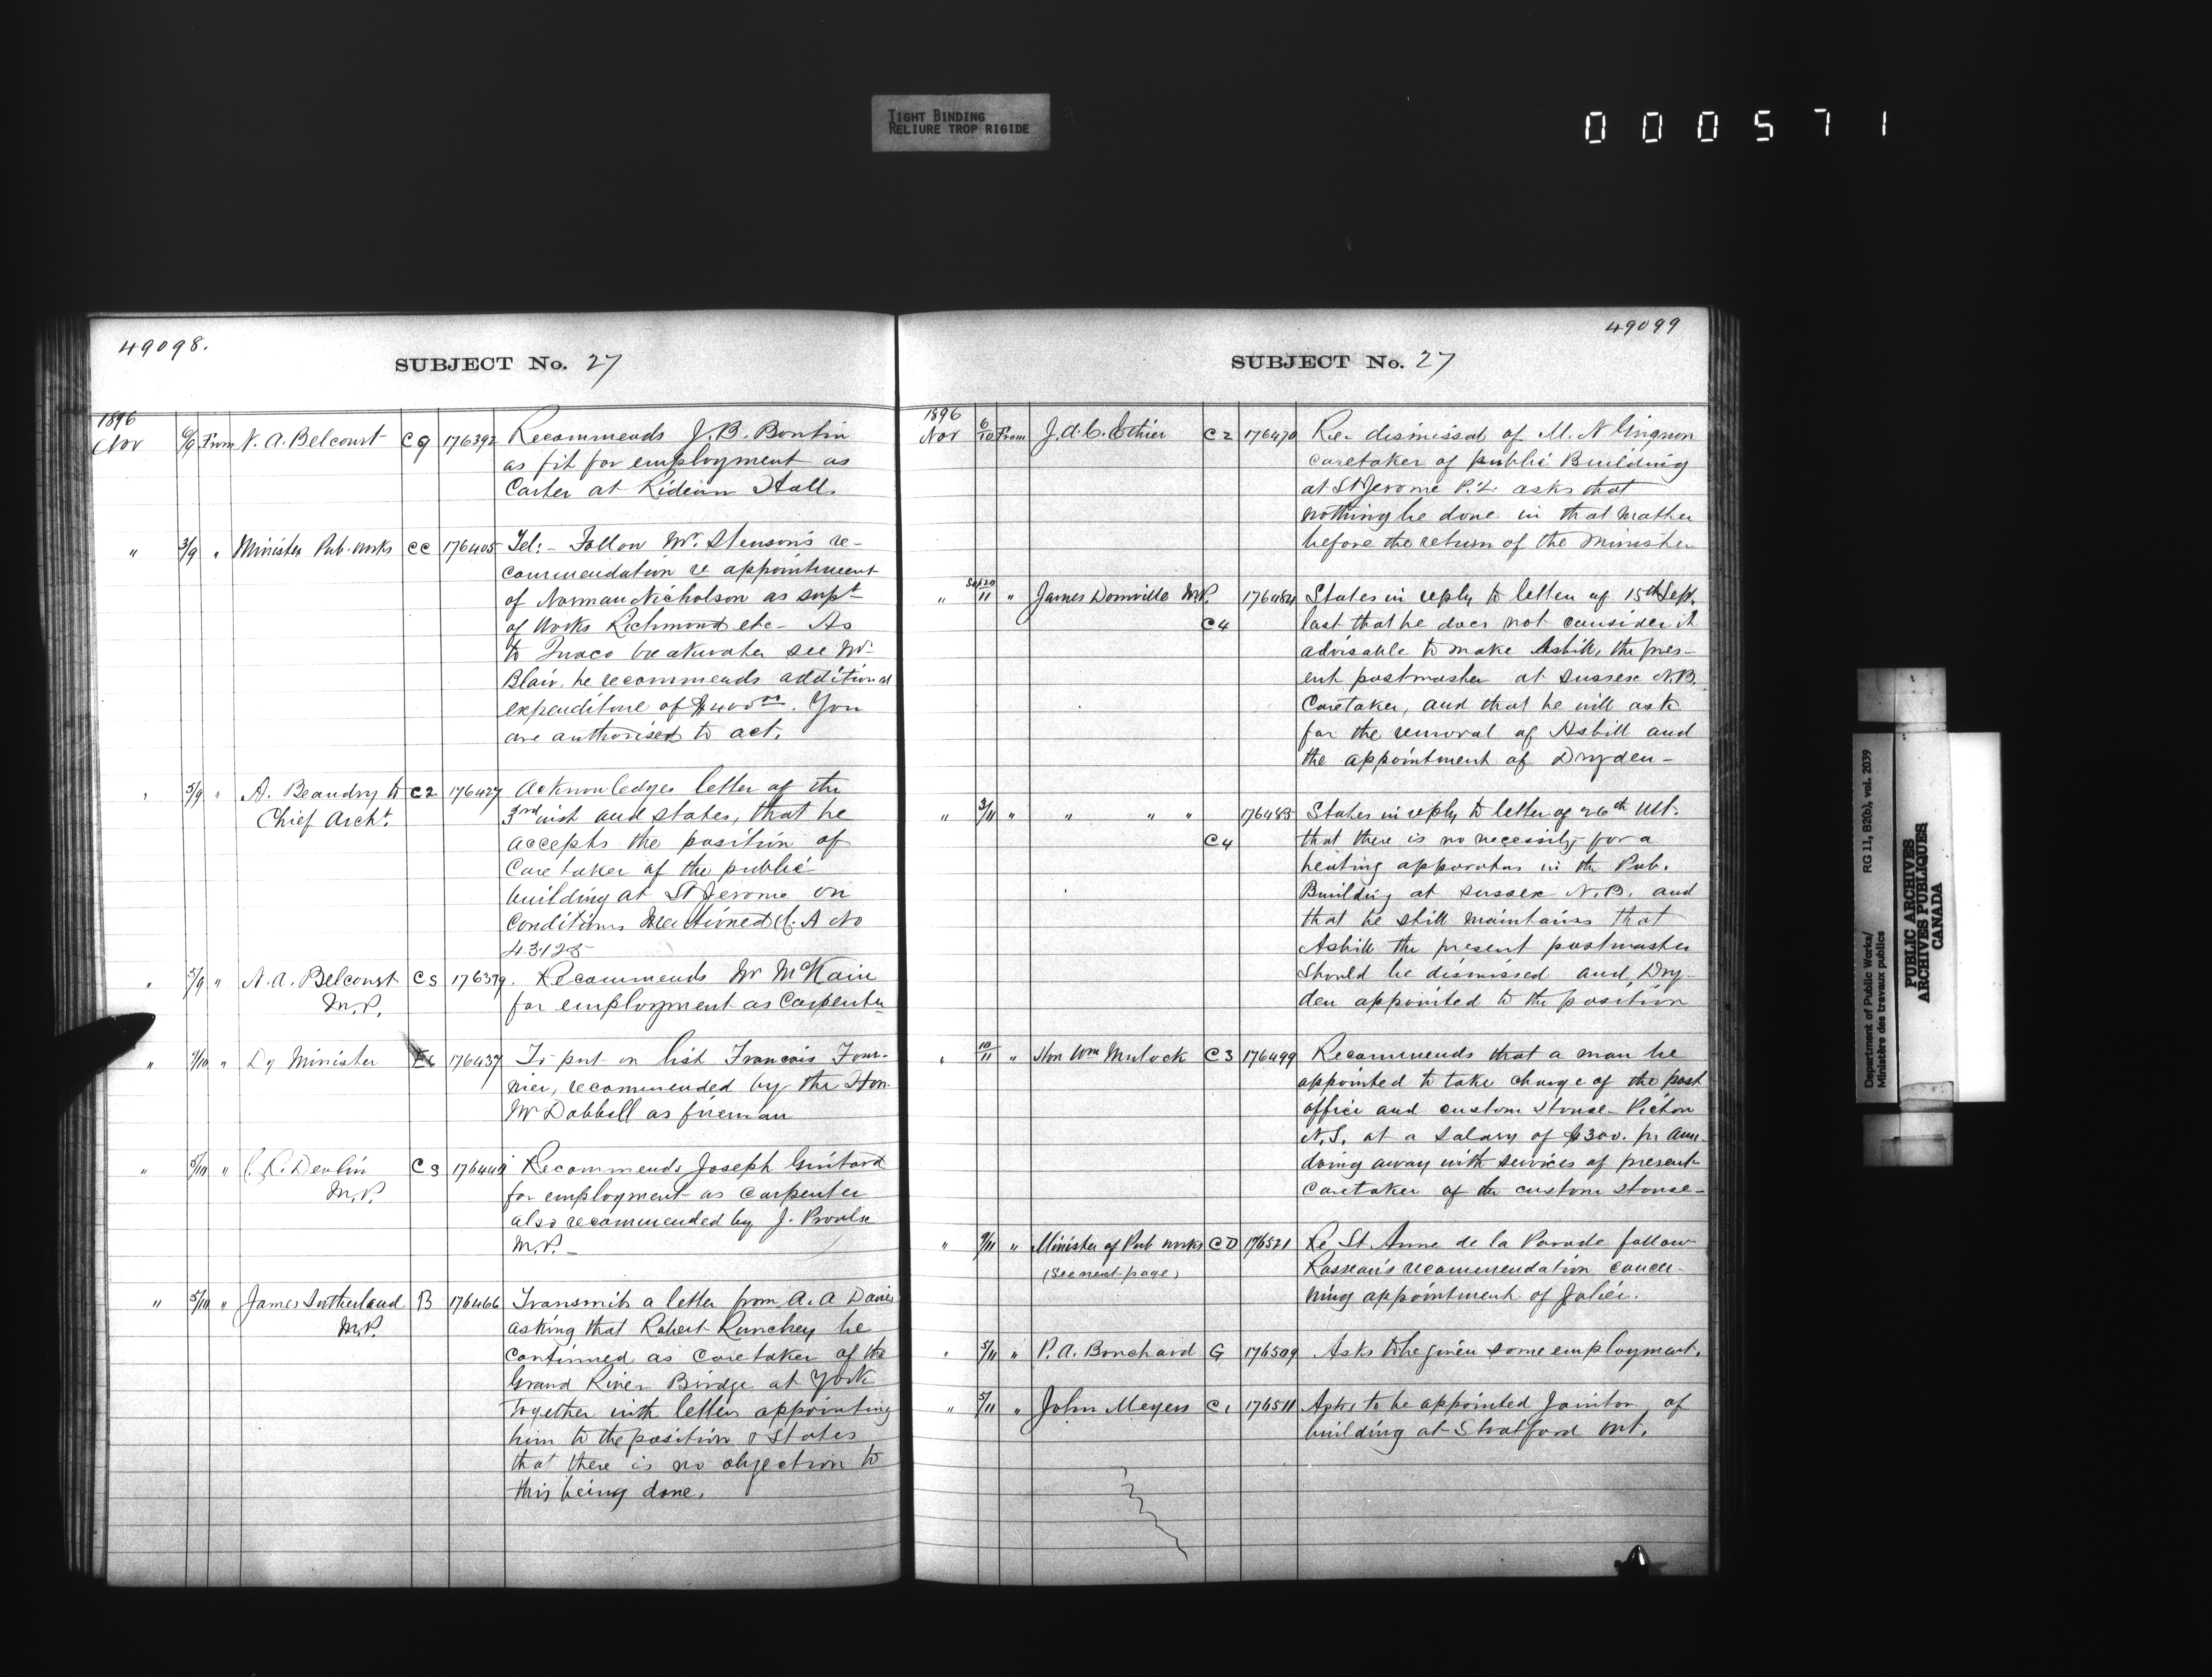 TIGHT BINDING
RELIURE TROP RIGIDE
000571
49098.
SUBJECT No. 27
1896
Nov 6/9 From N. A. Belcourt C9 176392 Recommends J. B. Bontin
as fit for employment as
Carter at Rideau Hall
" 3/9 " Minister Pub. works CC 176405 Tel:- Follow Mr. Stenson's re-
commendation re appointment
of Norman Nicholson as supt
of works Richmond etc - As
to Quaco breakwater see Mr.
Blair, he recommends additional
expenditure of $400.00. You
are authorised to act.
" 5/9 " A. Beaudry to C2 176427 Acknowledges letter of the
Chief Archt. 3rd inst and states, that he
accepts the position of
Caretaker of the public
building at St Jerome on
conditions mentioned C. A No
43125
" 5/9 " N. A. Belcourt C3 176379. Recommends Mr McKain
M.P. for employment as Carpenter
" 9/10 " Dy Minister 176437 To put on list Francois Four-
nier, recommended by the Hon.
Mr Dobbell as fireman
" 5/11 " C. R. Devlin C3 176440 Recommends Joseph Guitard
M.P. for employment as carpenter
also recommended by J. Proulx
M.P. -
" 5/11 " James Sutherland B 176466 Transmits a letter from A. A Davis
M.P. asking that Robert Runchey be
continued as caretaker of the
Grand River Bridge at York
together with letter appointing
him to the position & States
that there is no objection to
this being done.
49099
SUBJECT No. 27
1896
Nov 6/10 From J. A. C. Ethier C2 176470 Re. dismissal of M. N
caretaker of public Building
at St Jerome P.Q. asks that
nothing be done in that matter
before the return of the minister
" Sept 20/11 " James Domville M.P. 176484 States in reply to letter of 15th Sept.
C4 last that he does not consider it
advisable to make Asbill, the pres-
ent postmaster at Sussex N.B.
Caretaker, and that he will ask
for the removal of Asbill and
the appointment of Dryden -
" 3/11 " " " " 176485 States in reply to letter of 26th Ult.
C4 that there is no necessity for a
heating apparatus in the Pub.
Building at Sussex N.B. and
that he still maintains that
Asbill the present postmaster
should be dismissed and Dry-
den appointed to the position
" 10/11 " Hon Wm Mulock C3 176499 Recommends that a man be
appointed to take charge of the post
office and custom House - Pictou
N.S. at a salary of $300. pr Ann.
doing away with services of present
Caretaker of the custom House -
" 9/11 " Minister of Pub works CD 176521 Re St. Anne de la Parade follow
(See next page) Rosseau's recommendation concer-
ning appointment of
" 5/11 " P. A. Bouchard G 176509 Asks to be given some employment.
" 5/11 " John Meyers C1 176511 Asks to be appointed Janitor of
building at Stratford Ont.
Department of Public Works/ RG 11, B2(b), vol. 2039
Ministère des travaux publics
PUBLIC ARCHIVES
ARCHIVES PUBLIQUES
CANADA